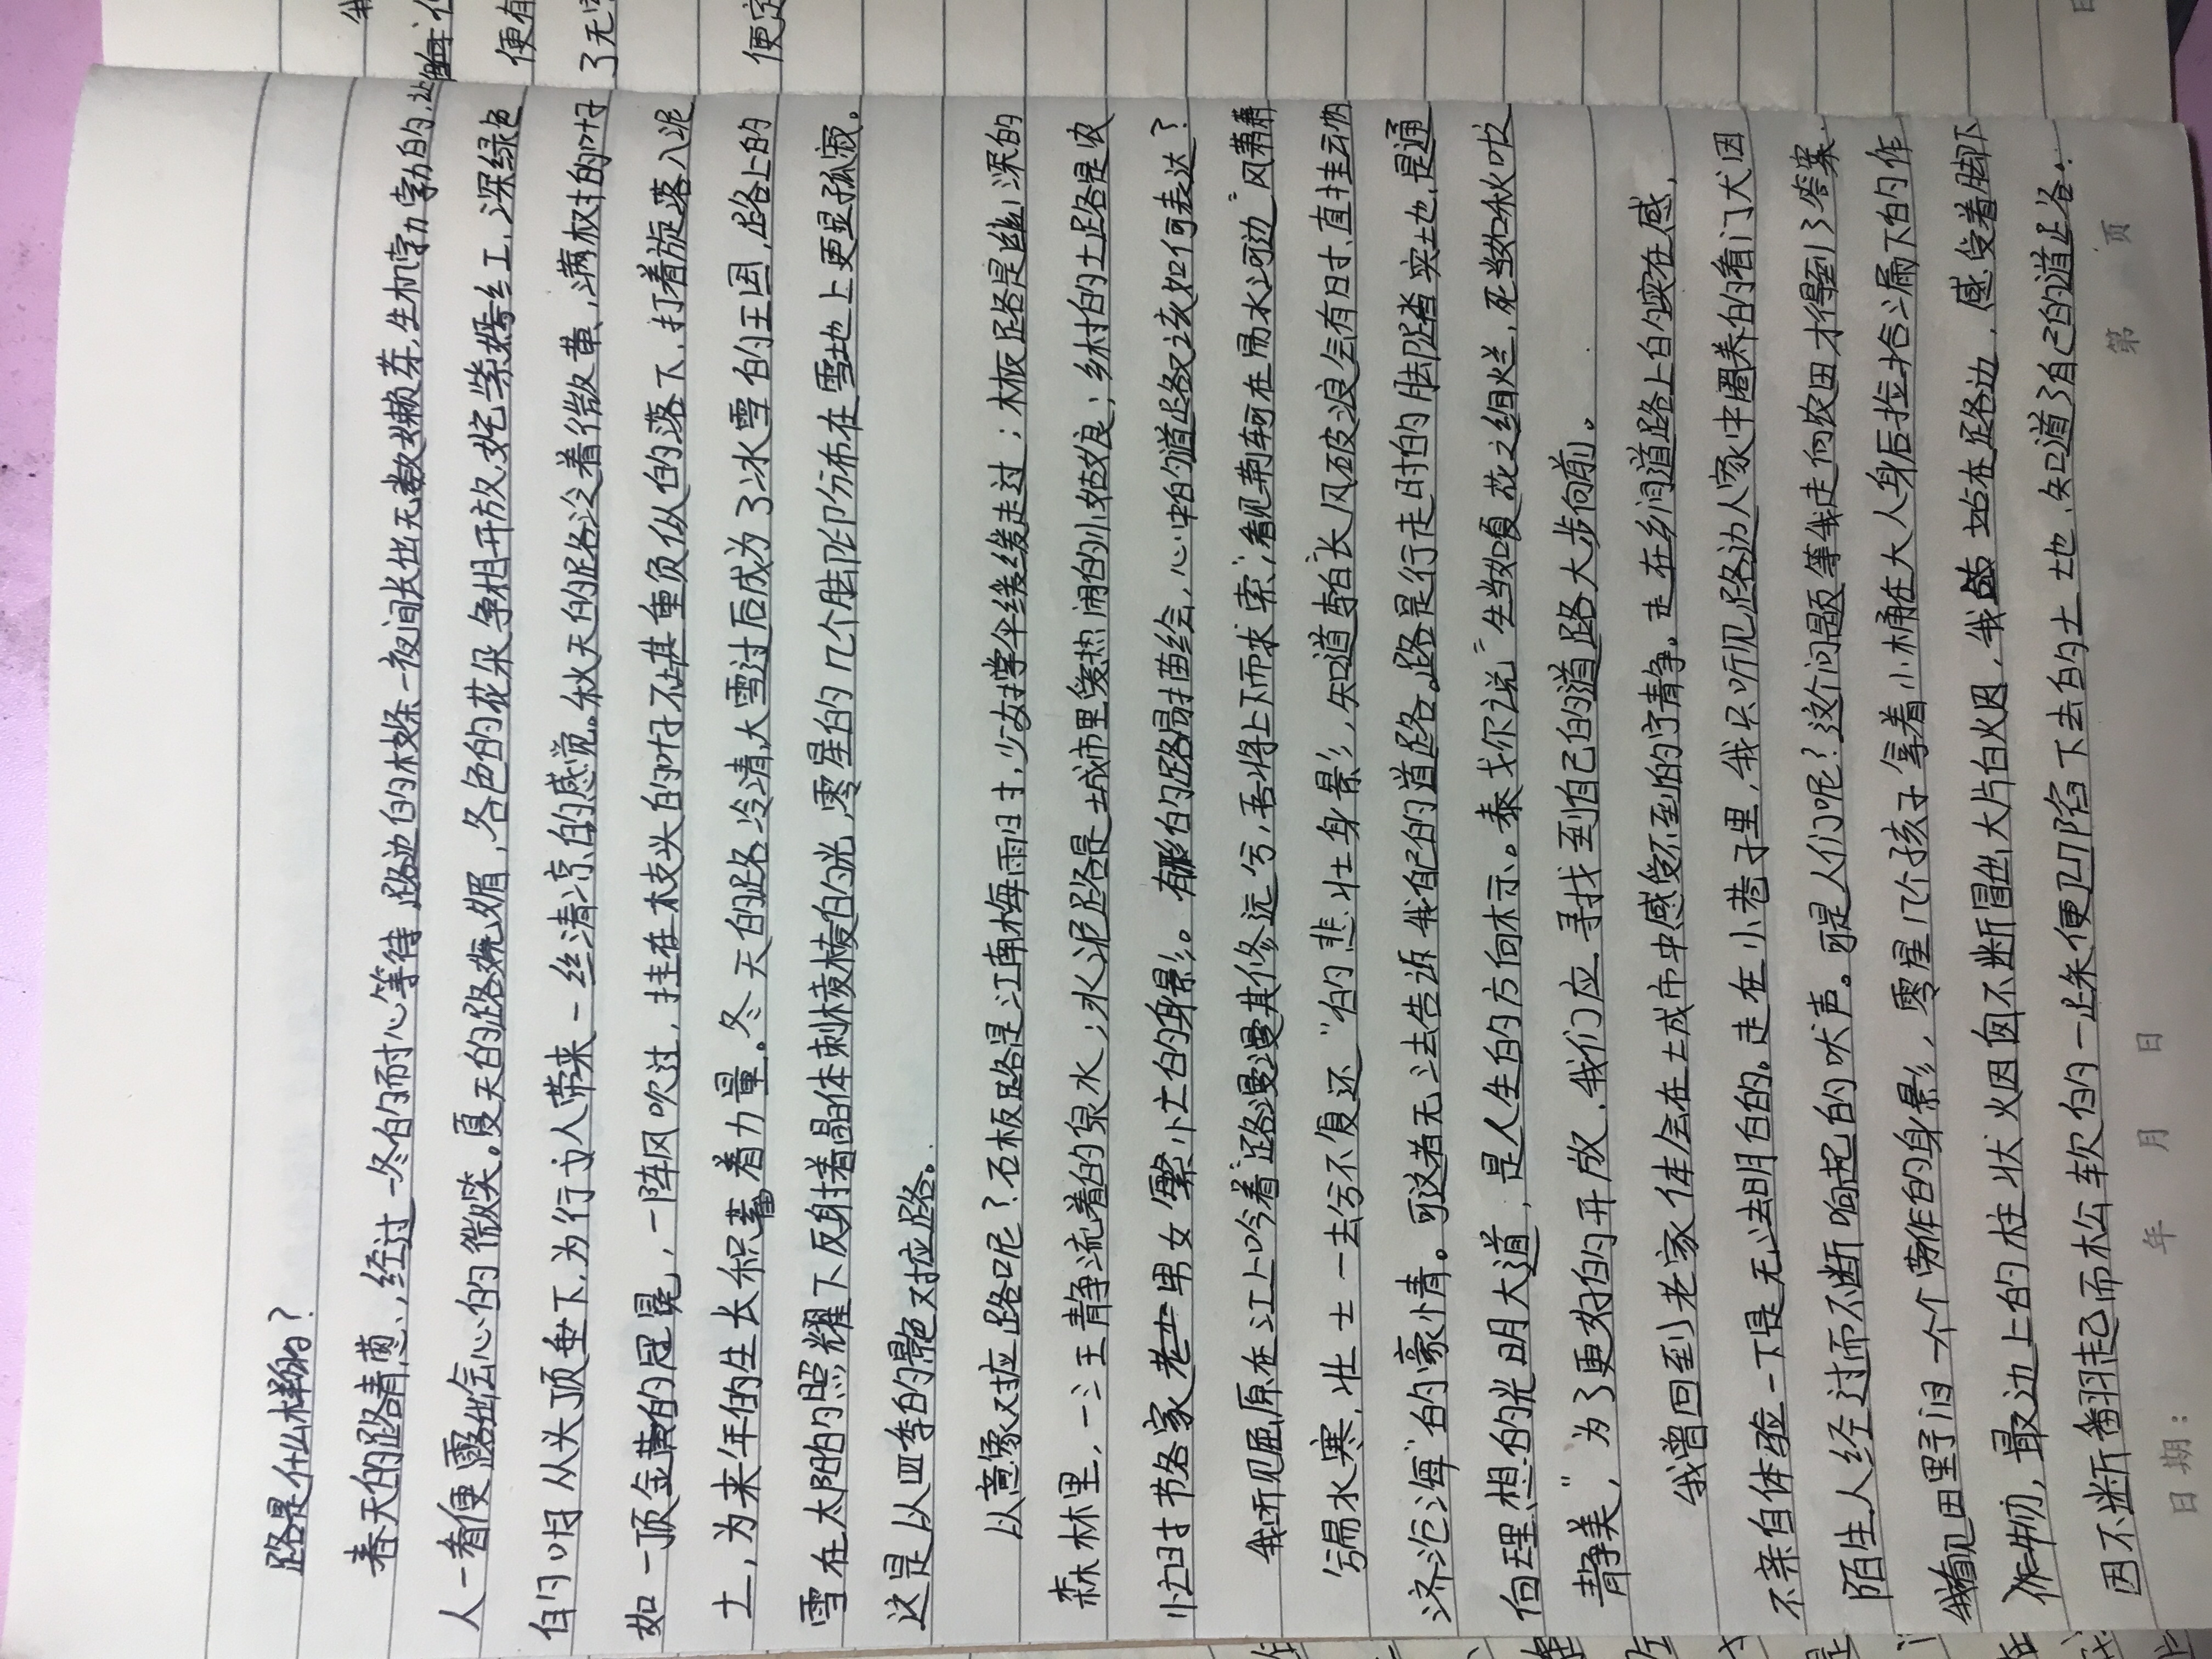 路是什么样的？
春天的路青葱，经过一冬的耐心等待，路边的枝条一夜间长出无数嫩芽，生机勃勃的，让
人一看便露出会心的微笑。夏天的路妩媚，各色的花朵争相开放，姹紫嫣红，深绿色
的叶从头顶垂下，为行人带来一丝清凉的感觉。秋天的路泛着微黄，满树的叶
如一顶金黄的冠冕，一阵风吹过，挂在枝头的叶不堪重负似的落下，打着旋落入泥
土，为来年的生长积蓄着力量。冬天的路冷清，大雪过后成为了冰雪的王国，路上的
雪在太阳的照耀下反射着晶体刺棱棱的光，零星的几个脚印分布在雪地上更显孤寂。
这是以四季的景色对应路。
以意像对应路呢？石板路是江南梅雨时，少女撑伞缓缓走过；木板路是幽深的
森林里，一汪静静流着的泉水；水泥路是城市里爱热闹的小姑娘；乡村的土路是农
忙时节各家老少男女繁忙的身影。有形的路易描绘，心中的道路又该如何表达？
我听见屈原在江上吟着“路漫漫其修远兮，吾将上下而求索”，看见荆轲在易水河边“风萧萧
兮易水寒，壮士一去兮不复还”的悲壮身影，知道李白“长风破浪会有时，直挂云帆
济沧海”的豪情。可这着无法告诉我他的道路。路是行走时的脚踏实地，是通
向理想的光明大道，是人生的方向标示。泰戈尔说“生当如夏花之绚烂，死当如秋叶
静美”，为了更好的开放，我们应寻找到自己的道路大步向前。
我曾回到老家体会在城市中感受不到的宁静。走在乡间道路上的实在感，
不亲自体验一下是无法明白的。走在小巷子里，我只听见路边人家中圈养的看门犬因
陌生人经过而不断响起的吠声。可是人们呢？这个问题等我走向农田才得到了答案。
我看见田野间一个个劳作的身影，零星几个孩子拿着小桶在大人身后捡拾漏下的作
作物，最边上的柱状火囱不断冒出大片白烟，我站在路边，感受着脚下
因不断翻起而松软的一踩便凹陷下去的土地，知道了自己的道路。
日期： 年 月 日 第 页